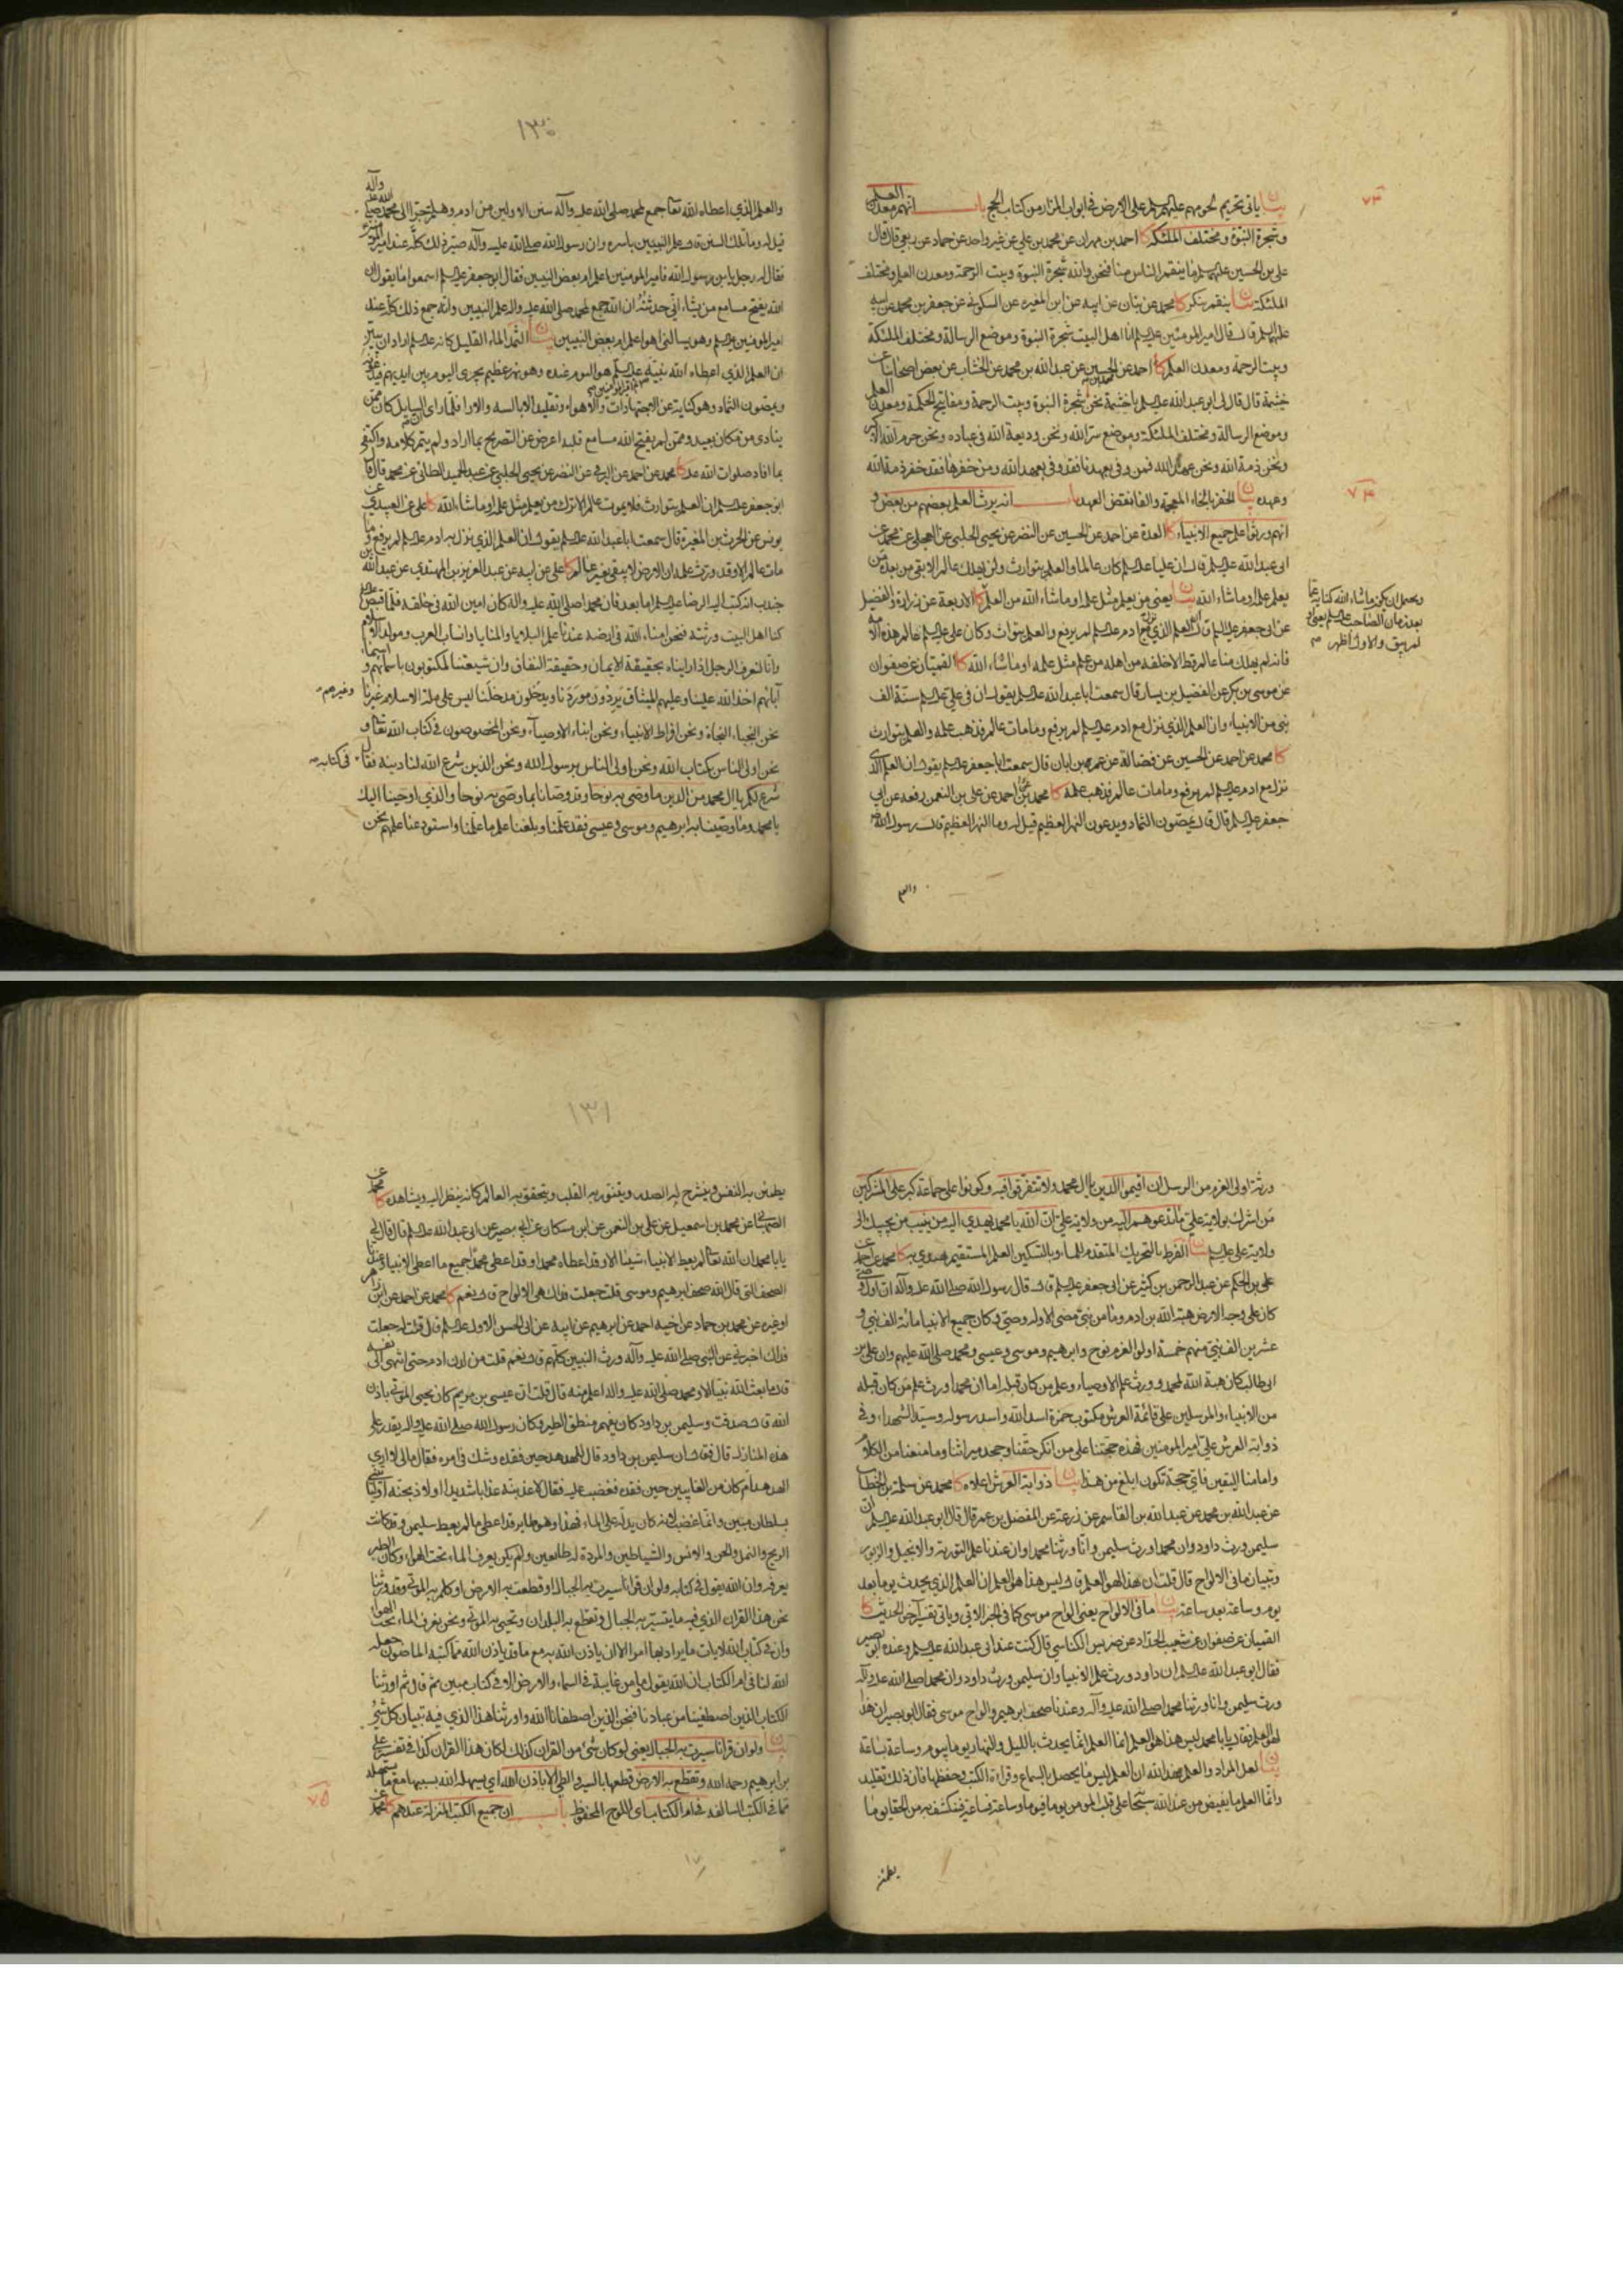 ٧٣
بيان ياتى تحريم لحومهم عليهم السلم على الارض فى ابواب المزار من كتاب الحج باب انهم معدن العلم
وشجرة النبوة ومختلف الملئكة كا احمد بن مهران عن محمد بن على عن غير واحد عن حماد عن ربعى قال قال
على بن الحسين عليهما السلم ما ينقم الناس منا فنحن والله شجرة النبوة وبيت الرحمة ومعدن العلم ومختلف
الملئكة بيان ينقم ينكر كا محمد عن بنان عن ابيه عن ابن المغيره عن السكونى عن جعفر بن محمد عن ابيه
عليهما السلم قال قال امير المومنين عليه السلم انا اهل البيت شجرة النبوة وموضع الرسالة ومختلف الملئكة
وبيت الرحمة ومعدن العلم كا احمد عن الحسين عن عبد الله بن محمد عن الخشاب عن بعض اصحابنا عن
خيثمة قال قال لى ابو عبد الله عليه السلم يا خيثمة نحن شجرة النبوة وبيت الرحمة ومفاتيح الحكمة ومعدن العلم
وموضع الرسالة ومختلف الملئكة وموضع سر الله ونحن وديعة الله فى عباده ونحن حرم الله الاكبر
ونحن ذمة الله ونحن عهد الله فمن وفى بعهدنا فقد وفى بعهد الله ومن خفرها فقد خفر ذمة الله
وعهده بيان الخفر بالخاء المعجمة والفا نقض العهد باب انه يرث العلم بعضهم من بعض و
٧٤
انهم ورثوا علم جميع الانبياء كا العدة عن احمد عن الحسين عن النضر عن يحيى الحلبى عن العجلى عن محمد عن
ابى عبد الله عليه السلم قال ان عليا عليه السلم كان عالما والعلم يتوارث ولن يهلك عالم الا بقى من بعده من
يعلم علمه او ماشاء الله بيان يعنى من يعلم مثل علمه او ماشاء الله من العلم كا الاربعة عن زرارة والفضيل
ويحتمل ان يكون ماشاء الله كناية عما
بعد زمان الصاحب عليه السلم يعنى
لم يبق والاول اظهر
عن ابى جعفر عليه السلم قال ان العلم الذى نزل مع ادم عليه السلم لم يرفع والعلم يتوارث وكان على عليه السلم عالم هذه الامة
فانه لم يهلك منا عالم قط الا خلفه من اهله من علم مثل علمه او ماشاء الله كا القميان عن صفوان
عن موسى بن بكر عن الفضيل بن يسار قال سمعت ابا عبد الله عليه السلم يقول ان فى على عليه السلم سنة الف
نبى من الانبياء وان العلم الذى نزل مع ادم عليه السلم لم يرفع وما مات عالم فذهب علمه والعلم يتوارث
كا محمد عن احمد عن الحسين عن فضالة عن عمر بن ابان قال سمعت ابا جعفر عليه السلم يقول ان العلم الذى
نزل مع ادم عليه السلم لم يرفع وما مات عالم فذهب علمه كا محمد عن احمد عن على بن النعمن رفعه عن ابى
جعفر عليه السلم قال قال يمصون الثماد ويدعون النهر العظيم قيل له وما النهر العظيم قال رسول الله ص
والعلم
١٣٠
والعلم الذى اعطاه الله ان الله تعا جمع لمحمد صلى الله عليه وآله سنن الاولين من ادم وهلم جرا الى محمد صلى الله عليه وآله
قيل له وما تلك السنن قال علم النبيين باسره وان رسول الله صلى الله عليه وآله صير ذلك كله عند امير المومنين
فقال له رجل يا بن رسول الله فامير المومنين اعلم ام بعض النبيين فقال ابو جعفر عليه السلم اسمعوا ما يقول ان
الله يفتح مسامع من يشاء انى حدثته ان الله جمع لمحمد صلى الله عليه واله علم النبيين وانه جمع ذلك كله عند
امير المومنين عليه السلم وهو يسالنى اهو اعلم ام بعض النبيين بيان الثمد الماء القليل كانه عليه السلم اراد ان يبين
ان العلم الذى اعطاه الله نبيه عليه السلم هو اليوم عنده وهو نهر عظيم يجرى اليوم بين ايديهم فيدعونه
ويمصون الثماد وهو كناية عن الاجتهادات والاهواء وتقليد الابالسه والارا فلما راى السايل كان ممن
ينادى من مكان بعيد وممن لم يفتح الله مسامع قلبه اعرض عن التصريح بما اراد ولم يتم كلامه واكتفى
بما افاد صلوات الله عليه كا محمد عن احمد عن البرقى عن النضر عن يحيى الحلبى عن عبد الحميد الطائى عن محمد قال قال
ابو جعفر عليه السلم ان العلم يتوارث فلا يموت عالم الا ترك من يعلم مثل علمه او ماشاء الله كا على عن العبيدى عن
يونس عن الحرث بن المغيرة قال سمعت ابا عبد الله عليه السلم يقول ان العلم الذى نزل به ادم عليه السلم لم يرفع وما
مات عالم الا وقد ورث علمه ان الارض لا يبقى بغير عالم كا على عن ابيه عن عبد العزيز بن المهتدى عن عبد الله بن
جندب انه كتب اليه الرضا عليه السلم اما بعد فان محمدا صلى الله عليه واله كان امين الله فى خلقه فلما قبض
كنا اهل البيت ورثته فنحن امناء الله فى ارضه عندنا علم البلايا والمنايا وانساب العرب ومولد الاسلام
وانا لنعرف الرجل اذا رايناه بحقيقة الايمان وحقيقة النفاق وان شيعتنا لمكتوبون باسمائهم واسماء
آبائهم اخذ الله علينا وعليهم الميثاق يردون موردنا ويدخلون مدخلنا ليس على ملة الاسلام غيرنا وغيرهم
نحن النجباء النجاة ونحن افراط الانبياء ونحن ابناء الاوصياء ونحن المخصوصون فى كتاب الله تعا و
نحن اولى الناس بكتاب الله ونحن اولى الناس برسول الله ونحن الذين شرع الله لنا دينه فقال فى كتابه
شرع لكم يا ال محمد من الدين ما وصى به نوحا وقد وصانا بما وصى به نوحا والذى اوحينا اليك
يا محمد وما وصينا به ابرهيم وموسى وعيسى فقد علمنا وبلغنا علم ما علمنا واستودعنا علمهم نحن
ورثة اولى العزم من الرسل ان اقيموا الدين يا ال محمد ولا تتفرقوا فيه وكونوا على جماعة كبر على المشركين
من اشرك بولاية على ما تدعوهم اليه من ولاية على ان الله يا محمد يهدى اليه من ينيب من يجيبك الى
ولاية على عليه السلم بيان الفرط بالتحريك المتقدم للماء وبالتسكين العلم المستقيم يهتدى به كا محمد عن احمد عن
على بن الحكم عن عبد الرحمن بن كثير عن ابى جعفر عليه السلم قال قال رسول الله صلى الله عليه وآله ان اول وصى
كان على وجه الارض هبة الله بن ادم وما من نبى مضى الا وله وصى وكان جميع الانبيا مائة الف نبى و
عشرين الف نبى منهم خمسة اولو العزم نوح وابرهيم وموسى وعيسى ومحمد صلى الله عليهم وان على بن
ابى طالب كان هبة الله لمحمد وورث علم الاوصياء وعلم من كان قبله اما ان محمدا ورث علم من كان قبله
من الانبياء والمرسلين على قائمة العرش مكتوب حمزة اسد الله واسد رسوله وسيد الشهداء وفى
ذوابة العرش على امير المومنين فهذه حجتنا على من انكر حقنا وجحد ميراثنا وما منعنا من الكلام
وامامنا اليقين فاى حجة تكون ابلغ من هذا بيان ذوابة العرش اعلاه كا محمد عن سلمة بن الخطاب
عن عبد الله بن محمد عن عبد الله بن القاسم عن زرعة عن المفضل بن عمر قال قال ابو عبد الله عليه السلم ان
سليمن ورث داود وان محمدا ورث سليمن وانا ورثنا محمدا وان عندنا علم التورية والانجيل والزبور
وتبيان ما فى الالواح قال قلت ان هذا لهو العلم قال ليس هذا هو العلم ان العلم الذى يحدث يوما بعد
يوم وساعة بعد ساعة بيان ما فى الالواح يعنى الواح موسى كما فى الخبر الاتى وياتى تفسير اخر الحديث كا
القميان عن صفوان عن شعيب الحداد عن ضريس الكناسى قال كنت عند ابى عبد الله عليه السلم وعنده ابو بصير
فقال ابو عبد الله عليه السلم ان داود ورث علم الانبيا وان سليمن ورث داود وان محمدا صلى الله عليه وآله
ورث سليمن وانا ورثنا محمدا صلى الله عليه وآله وعندنا صحف ابرهيم والواح موسى فقال ابو بصير ان هذا
لهو العلم فقال يا با محمد ليس هذا هو العلم انما العلم انما يحدث بالليل والنهار يوما بيوم وساعة بساعة
بيان لعل المراد والعلم عند الله ان العلم ليس ما يحصل بالسماع وقراءة الكتب وحفظها فان ذلك تقليد
وانما العلم ما يفيض من عند الله سبحانه على قلب المومن يوما فيوما وساعة فساعة فينكشف به من الحقايق ما
يطمئن
١٣١
يطمئن به النفس وينشرح له الصدر ويتنور به القلب ويتحقق به العالم كانه ينظر اليه ويشاهده كا محمد عن
الصهبانى عن محمد بن اسمعيل عن على بن النعمن عن ابن مسكان عن ابى بصير عن ابى عبد الله عليه السلم قال قال لى
يا با محمد ان الله تعا لم يعط الانبياء شيئا الا وقد اعطاه محمدا وقد اعطى محمدا جميع ما اعطى الانبياء وعندنا
الصحف التى قال الله صحف ابرهيم وموسى قلت جعلت فداك هى الالواح قال نعم كا محمد عن احمد عن ابى زاهر
او غيره عن محمد بن حماد عن اخيه احمد عن ابرهيم عن ابيه عن ابى الحسن الاول عليه السلم قال قلت له جعلت
فداك اخبرنى عن النبى صلى الله عليه وآله ورث النبيين كلهم قال نعم قلت من لدن ادم حتى انتهى الى نفسه
قال ما بعث الله نبيا الا ومحمد صلى الله عليه واله اعلم منه قال قلت ان عيسى بن مريم كان يحيى الموتى باذن
الله قال صدقت وسليمن بن داود كان يفهم منطق الطير وكان رسول الله صلى الله عليه واله يقدر على
هذه المنازل قال فقال ان سليمن بن داود قال للهدهد حين فقده وشك فى امره فقال مالى لا ارى
الهدهد ام كان من الغايبين حين فقده فغضب عليه فقال لاعذبنه عذابا شديدا او لاذبحنه او لياتينى
بسلطان مبين وانما غضب لانه كان يدله على الماء فهذا وهو طاير قد اعطى ما لم يعط سليمن وقد كانت
الريح والنمل والجن والانس والشياطين والمردة له طائعين ولم يكن يعرف الماء تحت الهواء وكان الطير
يعرفه وان الله يقول فى كتابه ولو ان قرانا سيرت به الجبال او قطعت به الارض او كلم به الموتى وقد ورثنا
نحن هذا القران الذى فيه ما يتسير به الجبال وتقطع به البلدان وتحيى به الموتى ونحن نعرف الماء تحت الهواء
وان فى كتاب الله لايات ما يراد بها امر الا ان ياذن الله به مع ما قد ياذن الله مما كتبه الماضون جعله
الله لنا فى ام الكتاب ان الله يقول وما من غايبة فى السماء والارض الا فى كتاب مبين ثم قال ثم اورثنا
الكتاب الذين اصطفينا من عبادنا فنحن الذين اصطفانا الله واورثنا هذا الذى فيه تبيان كل شئ
بيان ولو ان قرانا سيرت به الجبال يعنى لو كان شئ من القران كذلك لكان هذا القران كذا فى تفسير على
بن ابرهيم رحمه الله وتقطع به الارض قطعها بالسير والطى الا باذن الله اى يسهله الله بسببها مع ما يسهله
مما فى الكتب السالفة فى ام الكتاب اى اللوح المحفوظ باب ان جميع الكتب المنزلة عندهم كا محمد عن
٧٥
١٧